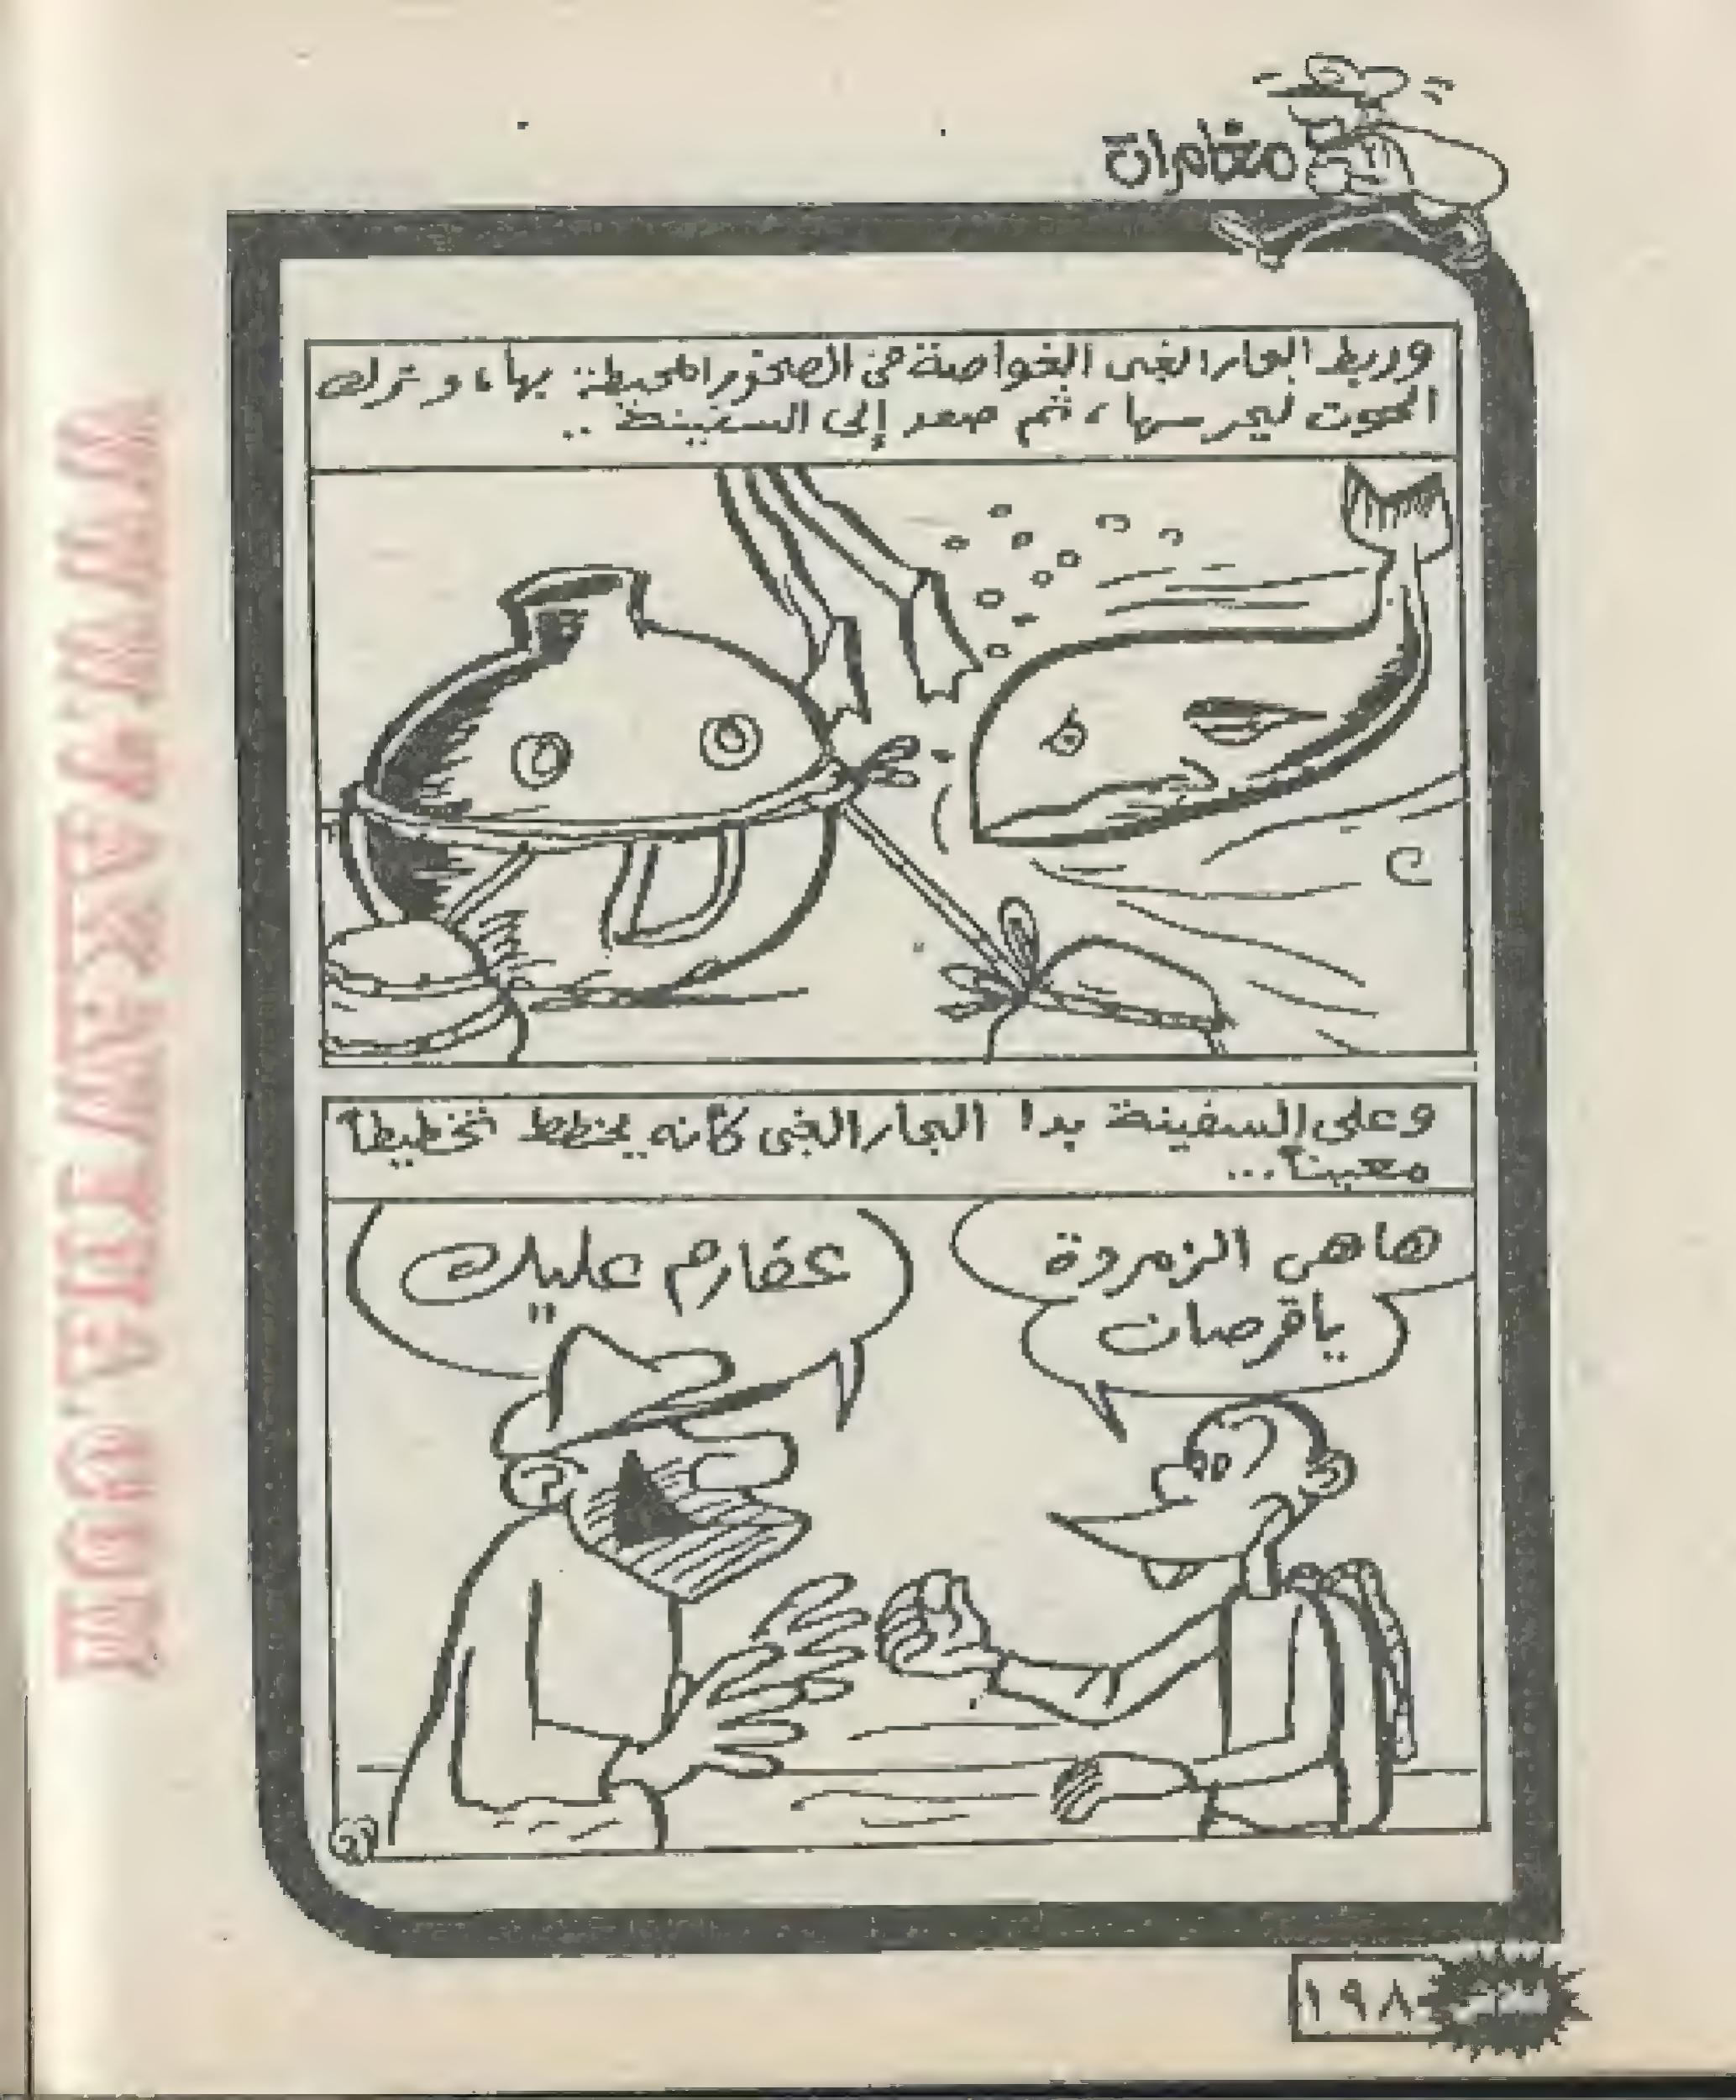 مغامرات
وربط البحار الغبى الغواصة فى الصخور المحيطة بها، وترك
الحوت ليحرسها، ثم صعد إلى السفينة ..
وعلى السفينة بدا البحار الغبى كأنه يخطط تخطيطاً
معيناً...
هاهى الزمردة
ياقرصان
عفارم عليك
١٩٨